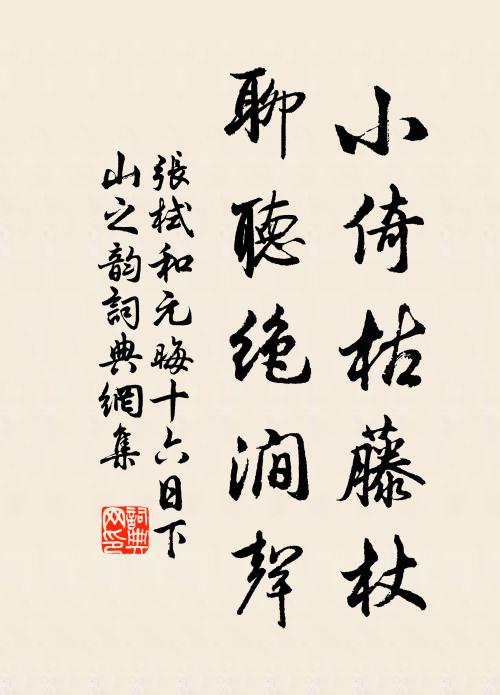 小倚枯藤杖
聊聽絶澗聲
張栻和元晦十六日下
山之韵詞典網集
詞典网印